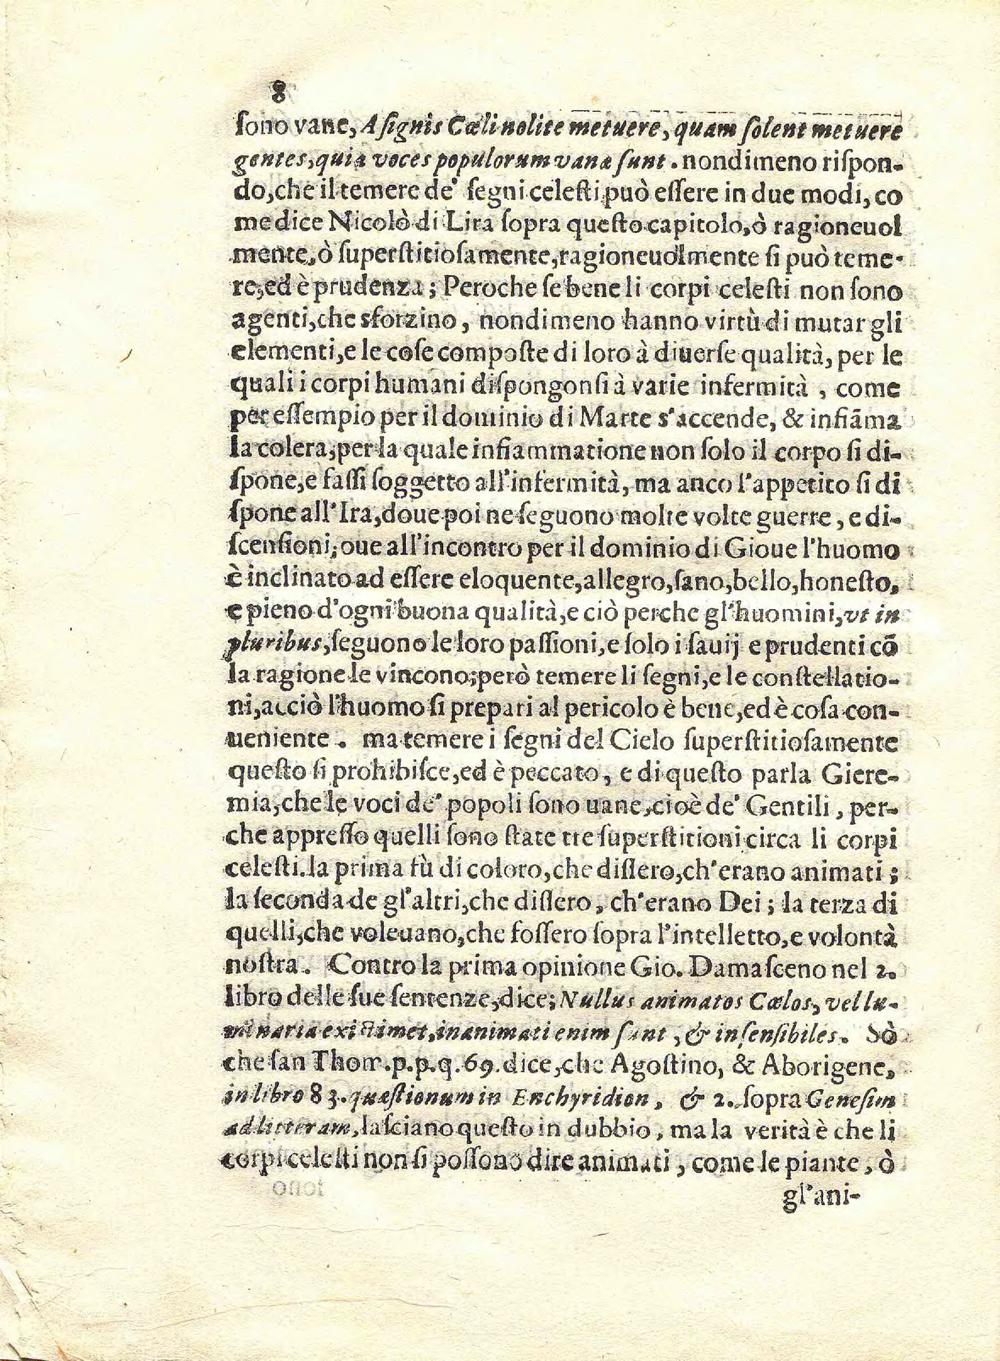 8
ſono vane, A ſignis Cœli nolite metuere, quam ſolent metuere
gentes, quia voces populorum vanæ ſunt. nondimeno riſpon-
do, che il temere de' ſegni celeſti può eſſere in due modi, co
me dice Nicolò di Lira ſopra queſto capitolo, ò ragioneuol
mente, ò ſuperſtitioſamente, ragioneuolmente ſi può teme-
re, ed è prudenza; Peroche ſe bene li corpi celeſti non ſono
agenti, che sforzino, nondimeno hanno virtù di mutar gli
elementi, e le coſe compoſte di loro à diuerſe qualità, per le
quali i corpi humani diſpongonſi à varie infermità, come
per eſſempio per il dominio di Marte s'accende, & infiãma
la colera, per la quale infiammatione non ſolo il corpo ſi di-
ſpone, e faſſi ſoggetto all'infermità, ma anco l'appetito ſi di
ſpone all'Ira, doue poi ne ſeguono molte volte guerre, e di-
ſcenſioni, oue all'incontro per il dominio di Gioue l'huomo
è inclinato ad eſſere eloquente, allegro, ſano, bello, honeſto,
e pieno d'ogni buona qualità, e ciò perche gl'huomini, vt in
pluribus, ſeguono le loro paſſioni, e ſolo i ſauij e prudenti cõ
la ragione le vincono; però temere li ſegni, e le conſtellatio-
ni, acciò l'huomo ſi prepari al pericolo è bene, ed è coſa con-
ueniente. ma temere i ſegni del Cielo ſuperſtitioſamente
queſto ſi prohibiſce, ed è peccato, e di queſto parla Giere-
mia, che le voci de' popoli ſono uane, cioè de' Gentili, per-
che appreſſo quelli ſono ſtate tre ſuperſtitioni circa li corpi
celeſti. la prima fù di coloro, che diſſero, ch'erano animati;
la ſeconda de gl'altri, che diſſero, ch'erano Dei; la terza di
quelli, che voleuano, che foſſero ſopra l'intelletto, e volontà
noſtra. Contro la prima opinione Gio. Damaſceno nel 2.
libro delle ſue ſentenze, dice; Nullus animatos Cœlos, vel lu-
minaria exiſtimet, inanimati enim ſunt, & inſenſibiles. Sò
che ſan Thom. p. p. q. 69. dice, che Agoſtino, & Aborigene,
in libro 83. quæſtionum in Enchyridion, & 2. ſopra Geneſim
ad litteram, laſciano queſto in dubbio, ma la verità è che li
corpi celeſti non ſi poſſono dire animati, come le piante, ò
gl'ani-